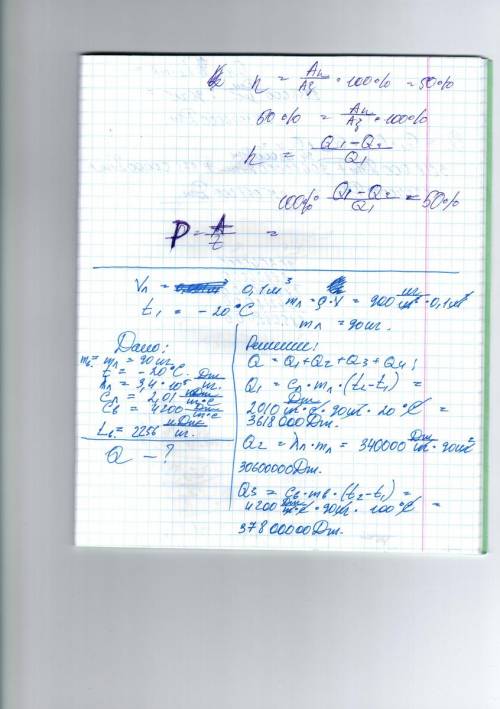 η = Aп/Aз · 100% = 50%
50% = Aп/Aз · 100%
η = Q1 - Q2 / Q1
100% · Q1 - Q2 / Q1 = 50%
P = A/t =
Vл = 0,1 м³
mл = ρ·V = 900 кг/м³ · 0,1 м³
t1 = -20°C
mл = 90 кг.
Дано:
mв = mл = 90 кг.
t = -20°C.
λл = 3,4 · 10⁵ Дж/кг.
Cл = 2,01 кДж/кг·°C
Cв = 4200 Дж/кг·°C
Lв = 2256 кДж/кг.
Q - ?
Решение:
Q = Q1 + Q2 + Q3 + Q4;
Q1 = Cл · mл · (t2 - t1) =
2010 Дж/кг·°C · 90 кг · 20°C =
3618000 Дж.
Q2 = λл · mл = 340000 Дж/кг · 90 кг =
30600000 Дж.
Q3 = Cв · mв · (t2 - t1) =
4200 Дж/кг·°C · 90 кг · 100°C =
37800000 Дж.